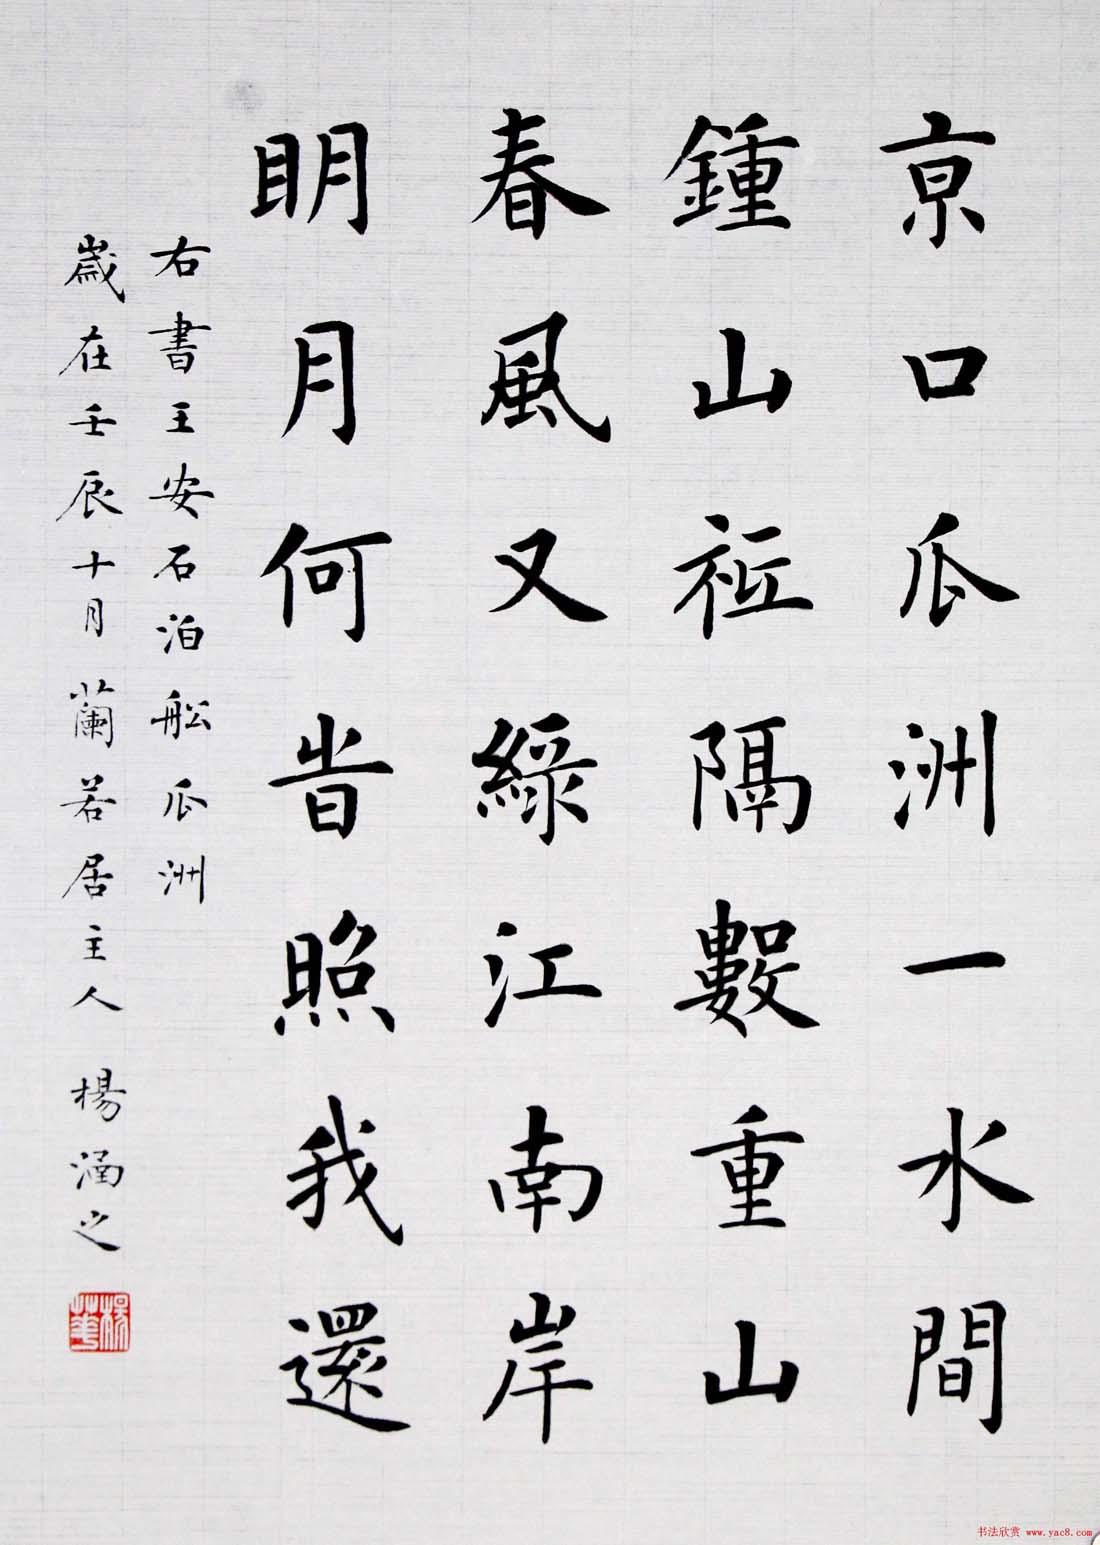 亰口瓜洲一水間
鍾山祗隔數重山
春風又綠江南岸
眀月何旹照我還
右書王安石泊舩瓜洲
歲在壬辰十月蘭若居主人 楊涵之
楊華
书法欣赏 www.yac8.com